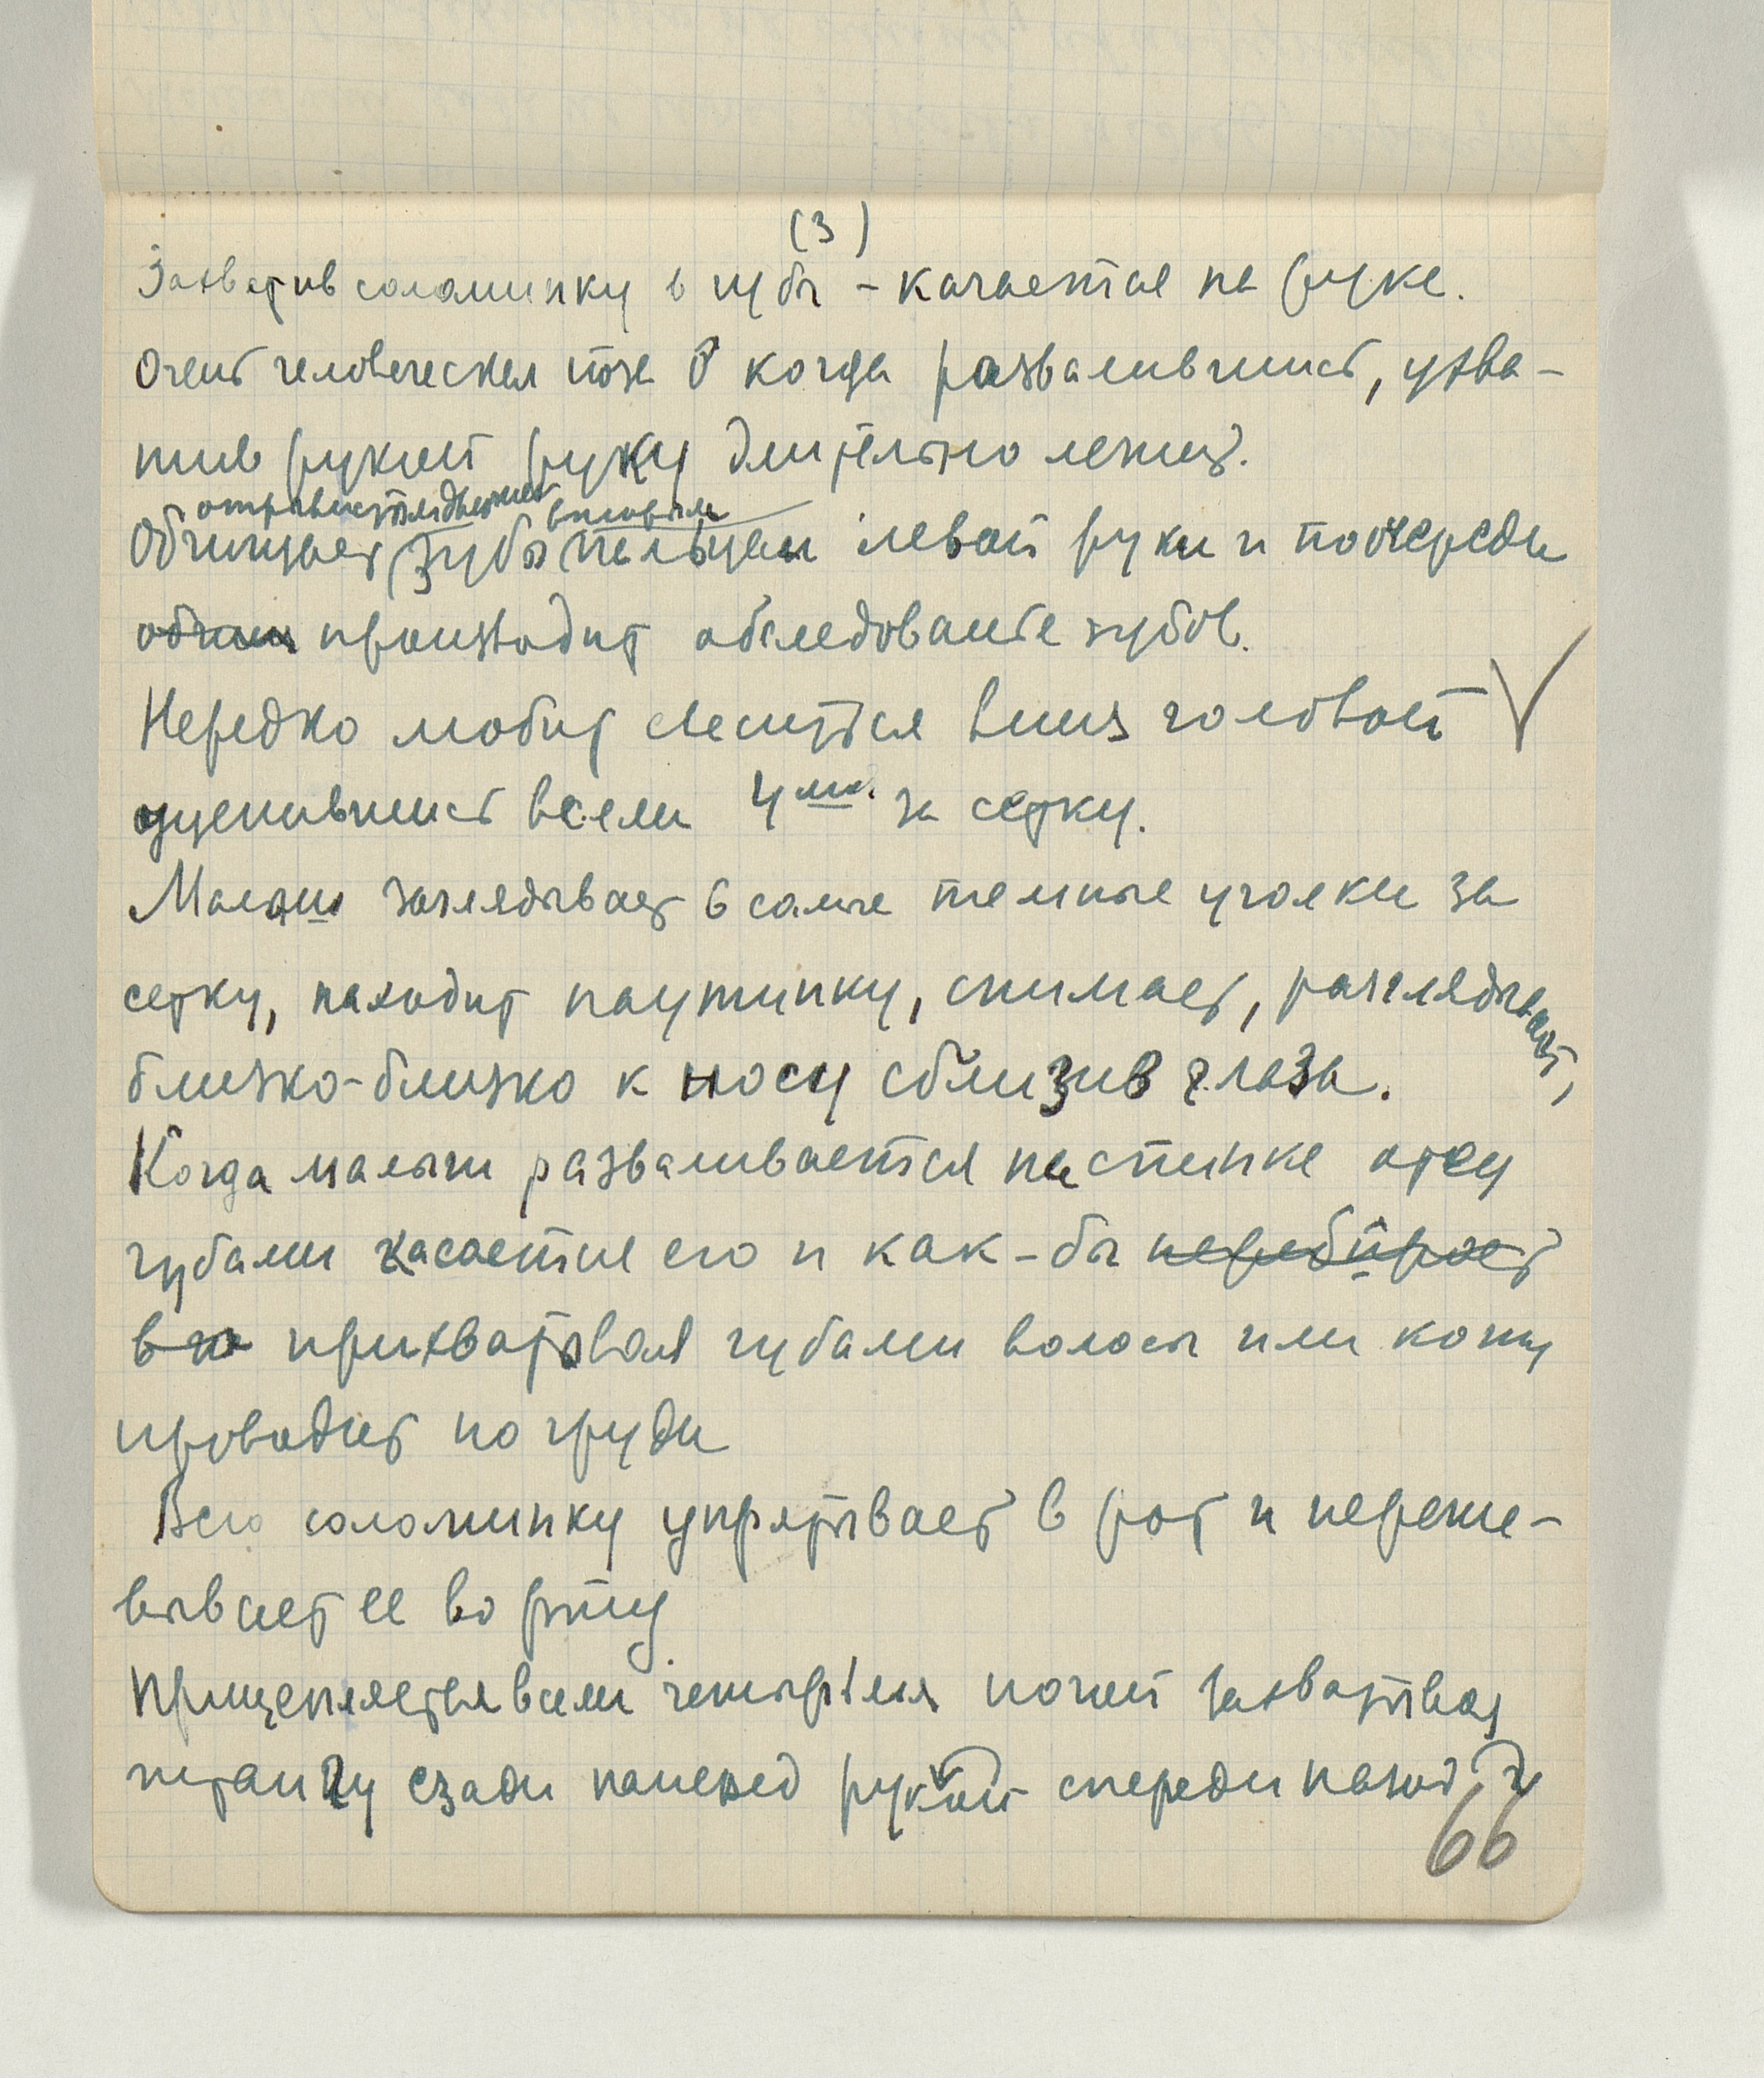 (3)
Захватив соломинку в зубы – качается на руке.
Очень человеческая поза когда развалившись, ухва-
тив рукой руку длительно лежит.
отрывистым движением
Обчищает зубы пальцем левой руки и поочереди
производит обследование зубов.
Нередко любит свеситься вниз головой V
уцепившись всеми 4мя. за сетку.
Малыш заглядывает в самые темные уголки за
сетку, находит паутинку, снимает, разглядывает,
близко-близко к носу сблизив глаза.
Когда малыш разваливается на спинке отец
губами касается его и как-бы перебирает
прихватывая губами волосы или кожу
проводит по груди
Всю соломинку упрятывает в рот и переже-
вывает ее во рту
Прицепляется всеми четырьмя ногой захватывая
штангу сзади наперед рукой спереди назад
66